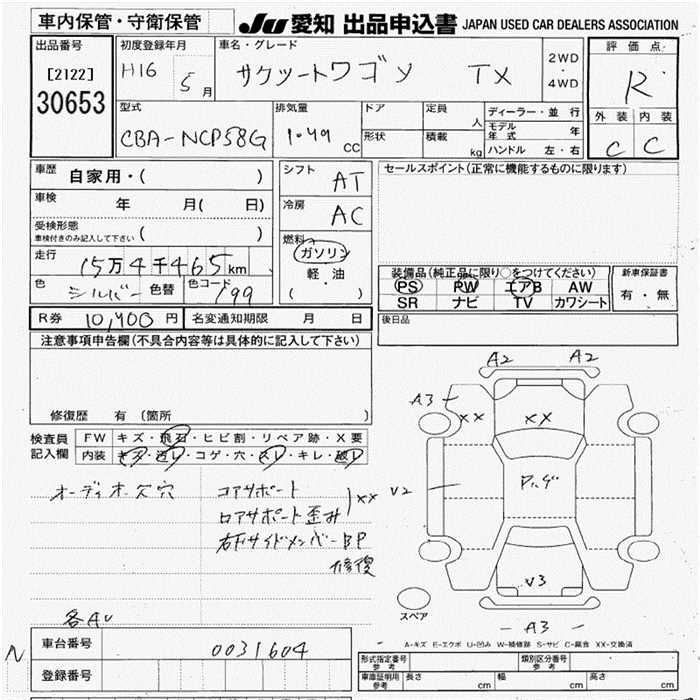 車内保管・守衛保管
JU 愛知 出品申込書 JAPAN USED CAR DEALERS ASSOCIATION
出品番号
[2122]
30653
初度登録年月
H16 5月
車名・グレード
サクシードワゴン TX
2WD
・
4WD
評価点
R
外装 内装
C C
型式
CBA-NCP58G
排気量
1.49 CC
ドア
形状
定員 人
積載 kg
ディーラー・並行
モデル年式 年
ハンドル 左・右
車歴
自家用・( )
車検
年 月( 日)
受検形態
車検付きのみ記入して下さい ( )
走行
15万4千465km
色
シルバー 色替 色コード 199
シフト
AT
冷房
AC
燃料
ガソリン
軽油
( ・ )
セールスポイント(正常に機能するものに限ります)
装備品(純正品に限り○をつけてください)
PS PW エアB AW
SR ナビ TV カワシート
新車保証書
有・無
R券 10,400円 名変通知期限 月 日
後日品
注意事項申告欄(不具合内容等は具体的に記入して下さい)
修復歴 有(箇所 )
検査員
記入欄
FW キズ・飛石・ヒビ割・リペア跡・X要
内装 キズ・汚レ・コゲ・穴・スレ・キレ・破レ
オーディオ欠穴
コアサポート
ロアサポート歪み
XX
右Fサイドメンバー BP
修復
各AU
A2 A2
A3
XX XX
V2
Pハゲ
V3
A3
スペア
A-キズ E-エクボ U-凹み W-補修跡 S-サビ C-腐食 XX-交換済
N
車台番号 0031604
登録番号
形式指定番号
参考
類別区分番号
参考
車庫証明用
参考
長さ cm 幅 cm 高さ cm